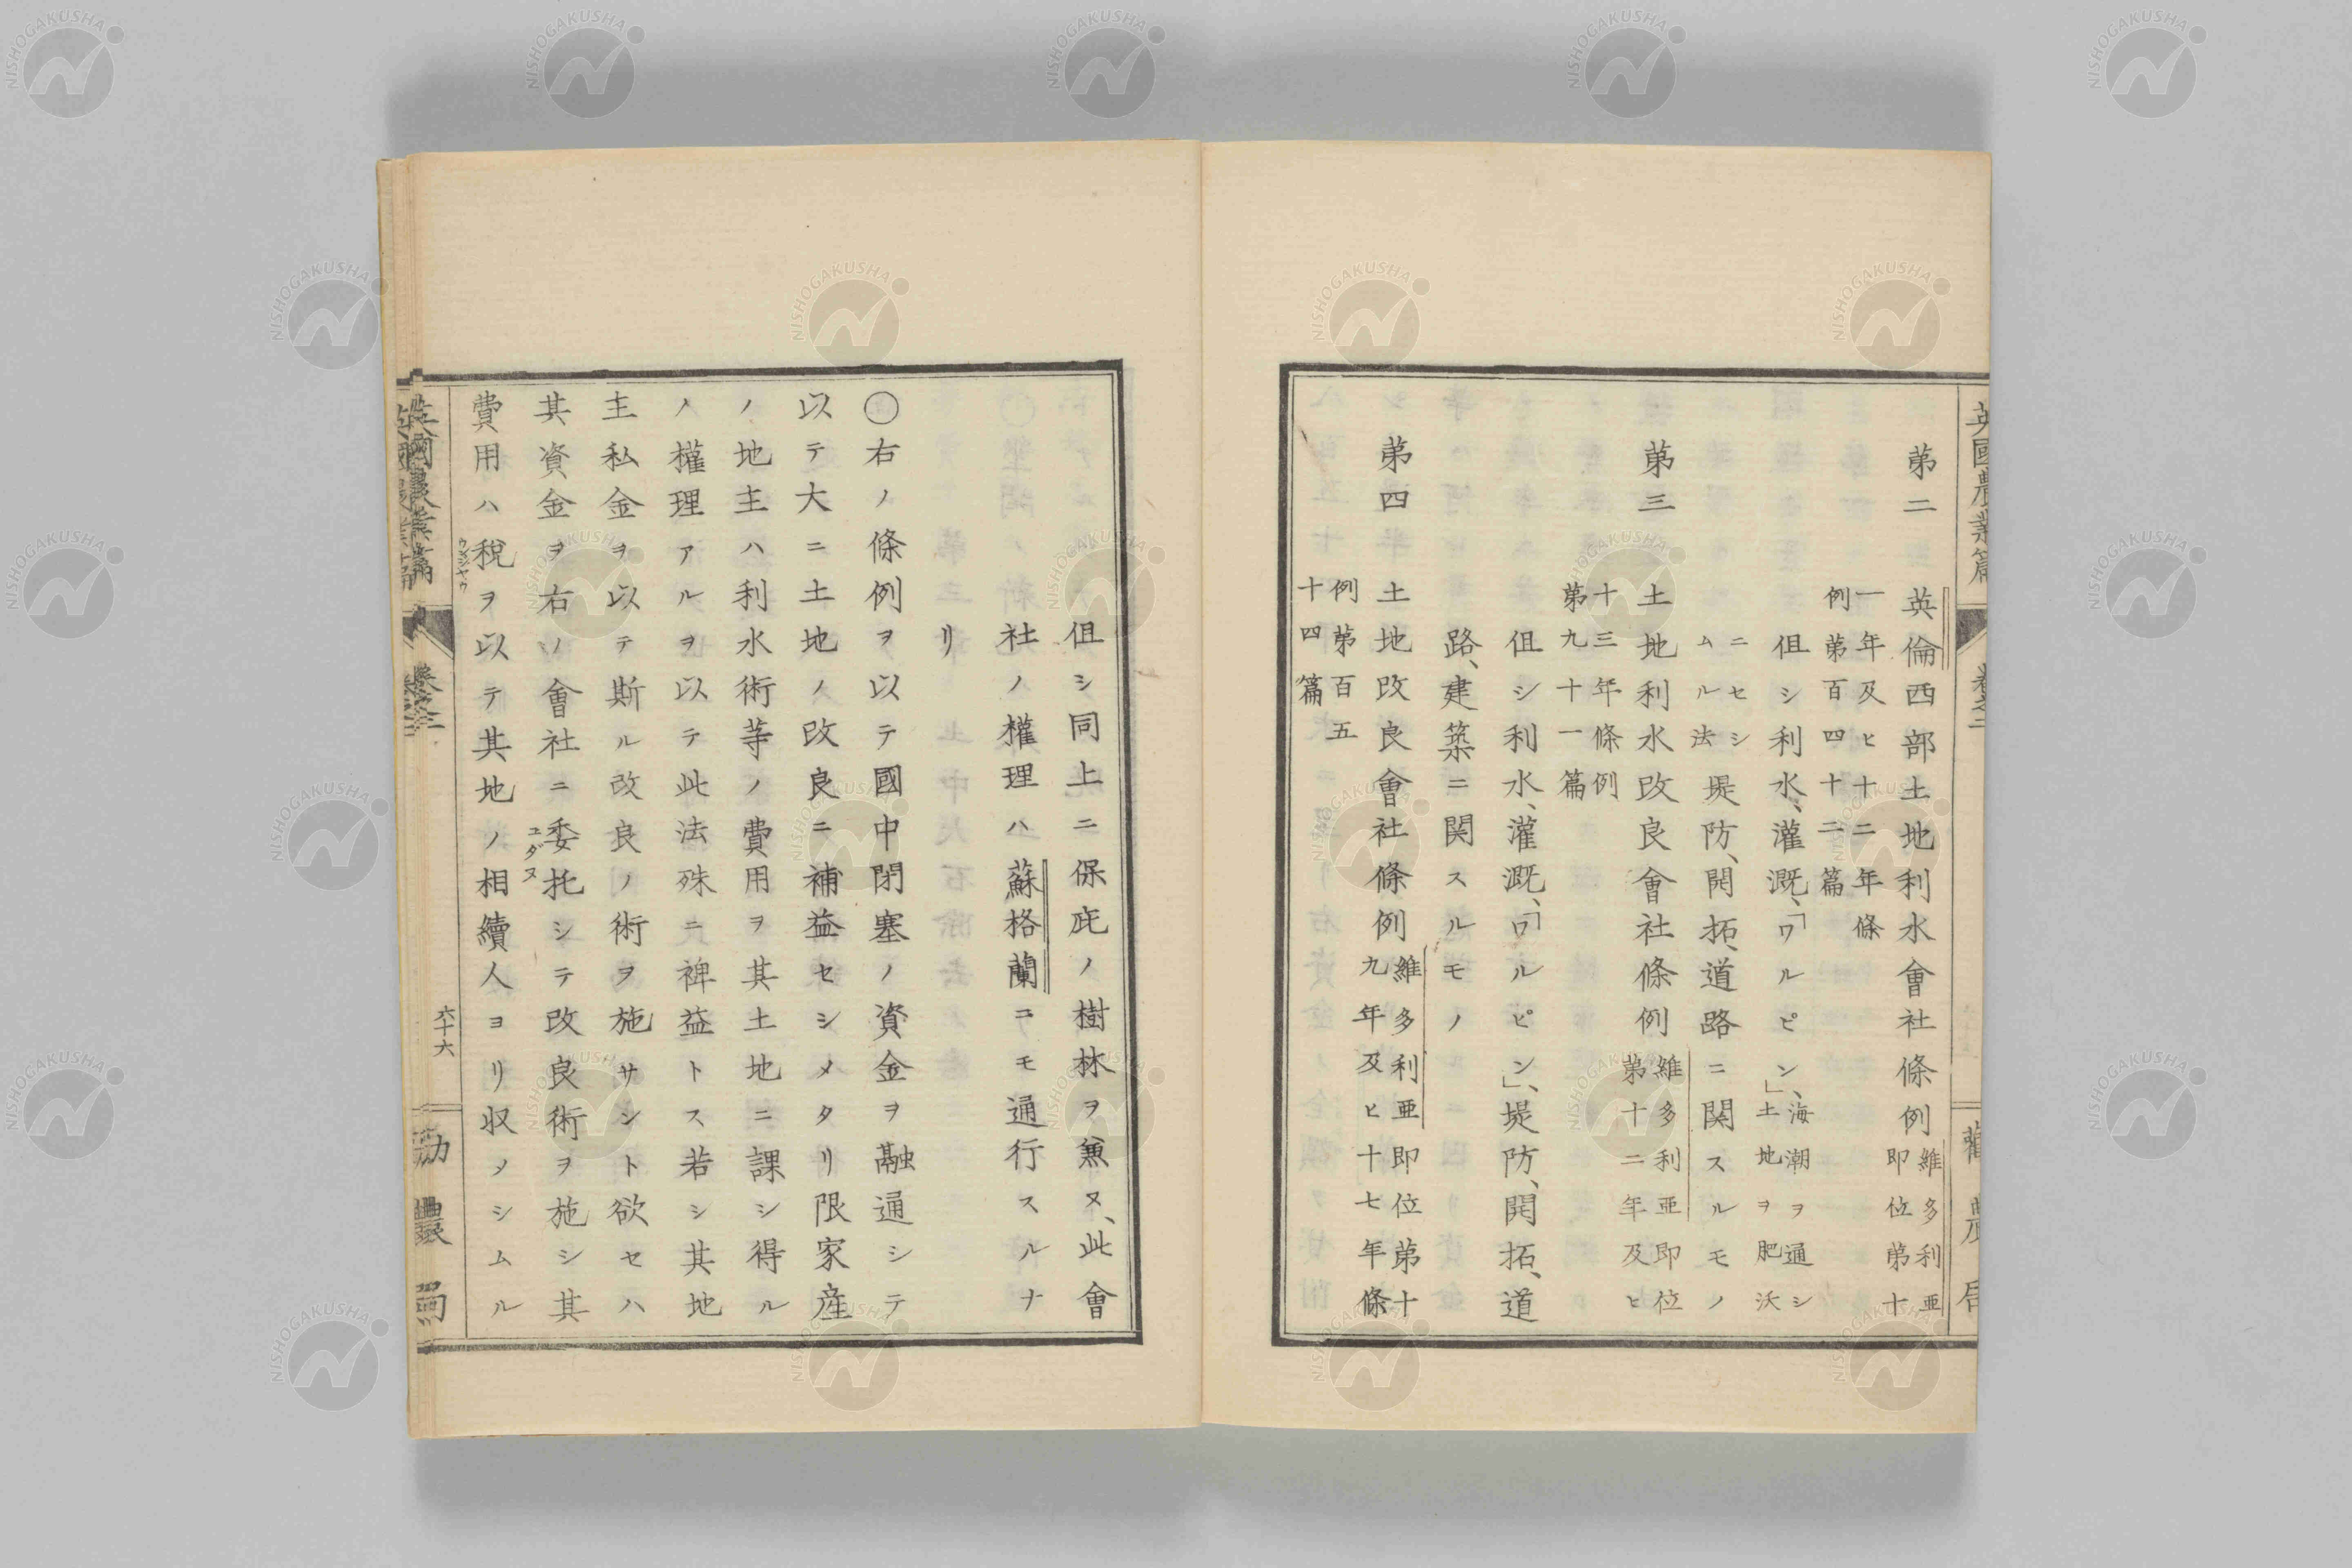 英國農業篇 卷之二 勸農局
第二 英倫西部土地利水會社條例 維多利亜即位第十
一年及ヒ十二年條例第百四十二篇
伹シ利水、灌溉、「ワルピン」、海潮ヲ通シ土地ヲ肥沃
ニセシムル法 堤防、開拓、道路ニ関スルモノ
第三 土地利水改良會社條例 維多利亜即位第十二年及ヒ
十三年條例第九十一篇
伹シ利水、灌溉、「ワルピン」、堤防、開拓、道
路、建築ニ関スルモノ
第四 土地改良會社條例 維多利亜即位第十九年及ヒ十七年條
例第百五十四篇
伹シ同上ニ保庇ノ樹林ヲ兼ヌ、此會
社ノ權理ハ蘇格蘭ニモ通行スルナ
リ
〇右ノ條例ヲ以テ國中閉塞ノ資金ヲ融通シテ
以テ大ニ土地ノ改良ニ補益セシメタリ限家産
ノ地主ハ利水術等ノ費用ヲ其土地ニ課シ得ル
ノ權理アルヲ以テ此法殊ニ裨益トス若シ其地
主私金ヲ以テ斯ル改良ノ術ヲ施サント欲セハ
其資金ヲ右ノ會社ニ委托シテ改良術ヲ施シ其
ユダヌ
費用ハ税ヲ以テ其地ノ相續人ヨリ収メシムル
英國農業篇 卷之二 六十六 勸農局